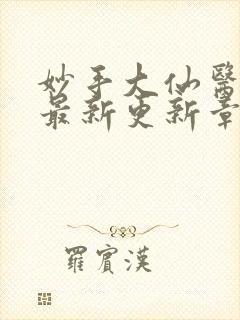 妙手大仙醫
最新更新章
羅賓漢